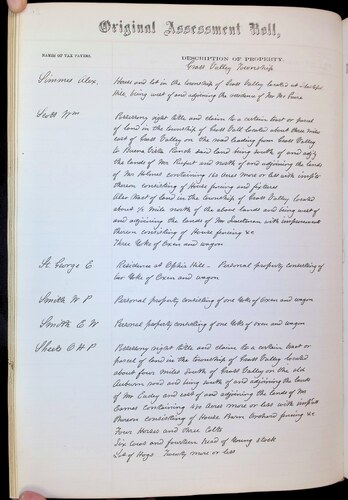 Original Assessment Roll,
NAMES OF TAX PAYERS.
DESCRIPTION OF PROPERTY.
Grass Valley Township
Simmes Alex.
House and lot in the township of Grass Valley located at
Hill being west of and adjoining the residence of Mr
Scott Wm
Possessory right title and claim to a certain tract or parcel
of land in the township of Grass Vall located about three miles
east of Grass Valley on the road leading from Grass Valley
to Buena Vista Ranch said land lying south of and adj'g
the lands of Mr and north of and adjoining the lands of
Mr containing 160 acres more or less with impts
thereon consisting of House fencing and fixtures
Also tract of land in the township of Grass Valley located
about ½ mile north of the above lands and being west of
and adjoining the lands of Mr with improvement
thereon consisting of House fencing &c
Three Yoke of Oxen and wagon
St George E
Residence at Ophir Hill – Personal property consisting of
two Yoke of Oxen and wagon
Smith W P
Personal property consisting of one Yoke of Oxen and wagon
Smith E W
Personal property consisting of one Yoke of oxen and wagon
Sheets O H P
Possessory right title and claim to a certain tract or
parcel of land in the township of Grass Valley located
about four miles South of Grass Valley on the old
Auburn road and being south of and adjoining the lands
of Mr Cady and east of and adjoining the lands of Mr
Barnes Containing 160 Acres more or less with impts
thereon consisting of House Barn Orchard fencing &c
Four Horses and three Colts
Six cows and fourteen head of Young stock
Lot of Hogs Twenty more or less